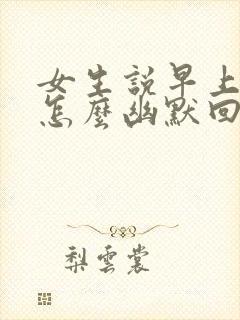 女生說早上
怎麼幽默回
梨雲裳